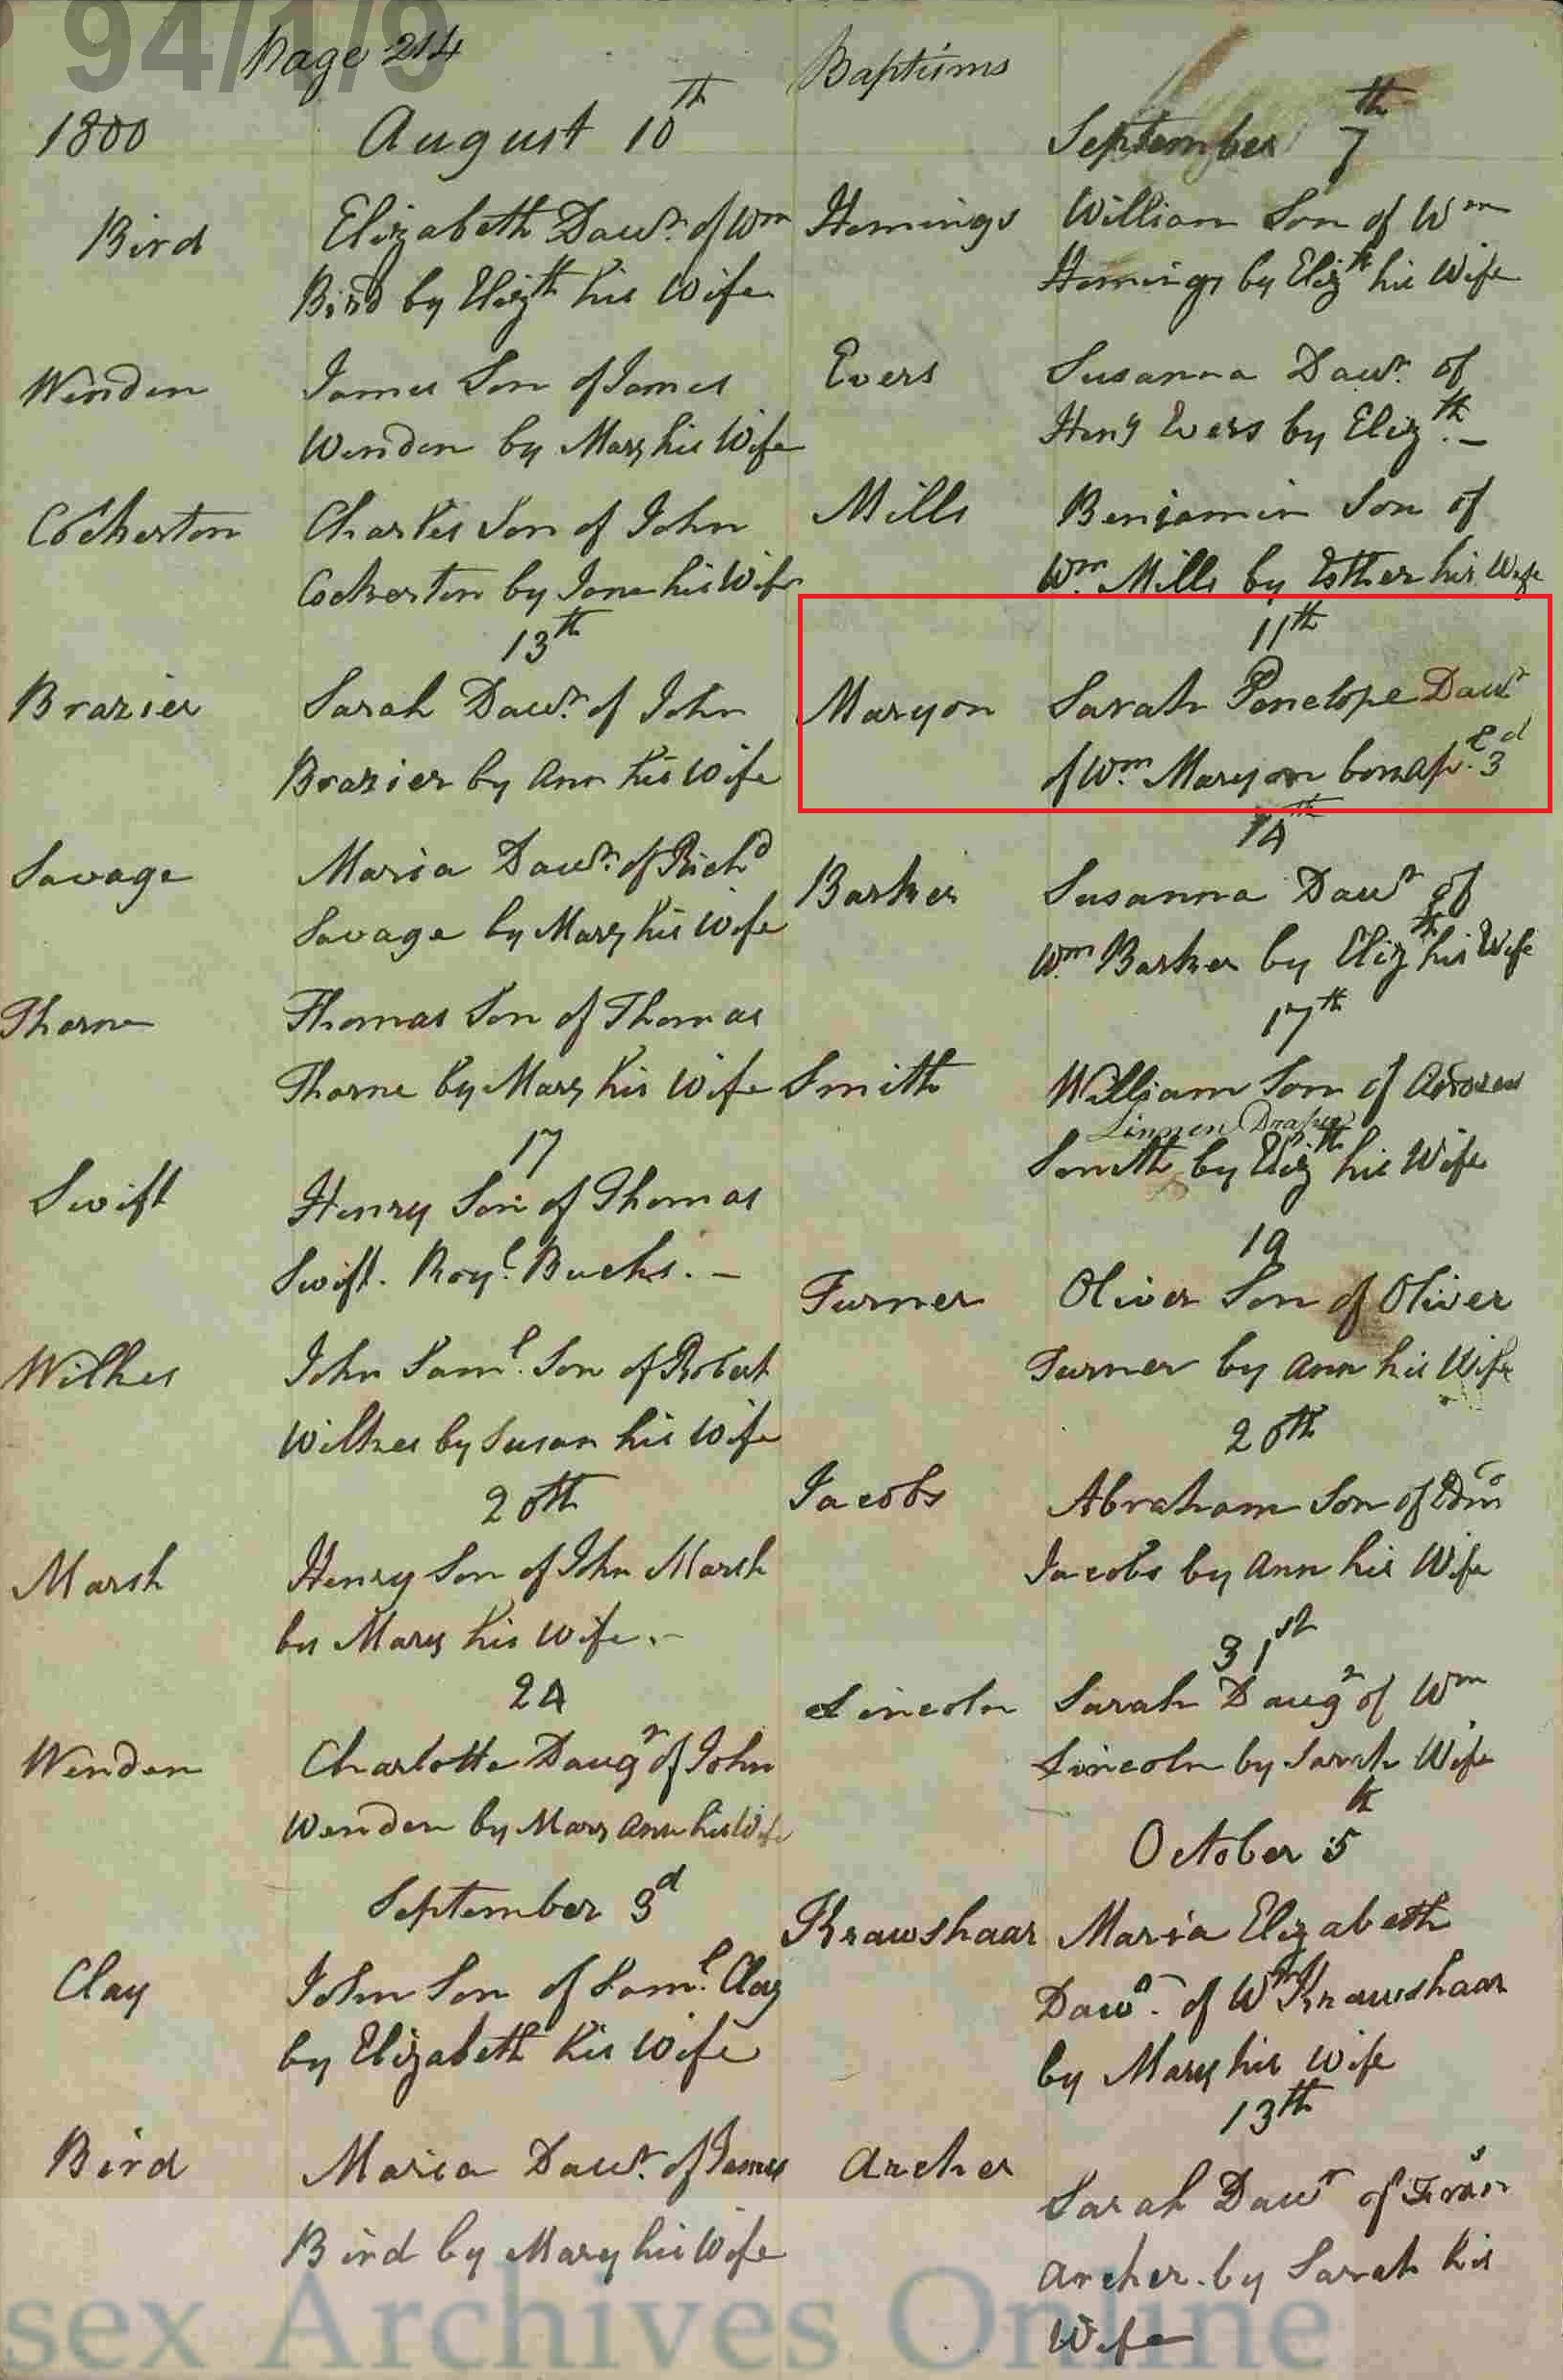 94/1/9
Page 214
Baptisms
1800
August 10th
Bird
Elizabeth Dawr. of Wm
Bird by Elizth his Wife
Wenden
James Son of James
Wenden by Mary his Wife
Cockerton
Charles Son of John
Cockerton by Jane his Wife
13th
Brazier
Sarah Dawr. of John
Brazier by Ann his Wife
Savage
Maria Dawr. of Richd
Savage by Mary his Wife
Thorne
Thomas Son of Thomas
Thorne by Mary his Wife
17
Swift
Henry Son of Thomas
Swift. Royl. Bucks. –
Wilkes
John Saml. Son of Robert
Wilkes by Susan his Wife
20th
Marsh
Henry Son of John Marsh
by Mary his Wife. –
24
Wenden
Charlotte Daugr of John
Wenden by Mary Ann his Wife
September 3d
Clay
John Son of Saml. Clay
by Elizabeth his Wife
Bird
Maria Dawr. of James
Bird by Mary his Wife
September 7th
Hemings
William Son of Wm
Hemings by Elizth his Wife
Evers
Susanna Dawr. of
Heny Evers by Elizth. –
Mills
Benjamin Son of
Wm. Mills by Esther his Wife
11th
Maryon
Sarah Penelope Dawr
of Wm. Maryon born
14th
Barker
Susanna Dawr of
Wm Barker by Elizth his Wife
17th
Smith
William Son of Andrew
Linnen Draper
Smith by Elizth his Wife
19
Turner
Oliver Son of Oliver
Turner by Ann his Wife
20th
Jacobs
Abraham Son of
Jacobs by Ann his Wife
31st
Lincoln
Sarah Daugr of Wm
Lincoln by Sarah Wife
October 5th
Krawshaar
Maria Elizabeth
Dawr. of Wm Krawshaar
by Mary his Wife
13th
Archer
Sarah Dawr of
Archer. by Sarah his
Wife
sex Archives Online